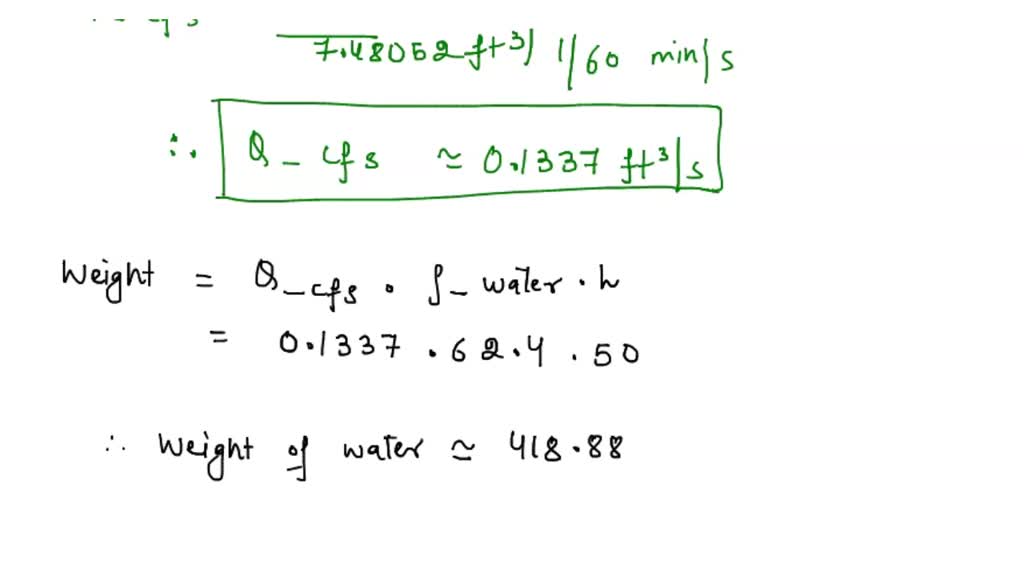 7.48052 ft³) 1/60 min/s
∴ Q_cfs ≈ 0.1337 ft³/s
Weight = Q_cfs . ρ_water . h
= 0.1337 . 62.4 . 50
∴ Weight of water ≃ 418.88